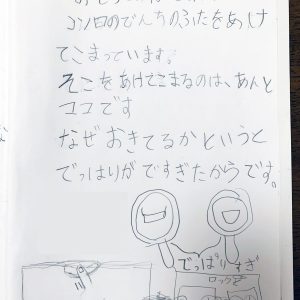 コンロのでんちのふたをあけ
てこまっています。
そこをあけてこまるのは、あんと
ココです
なぜおきてるかというと
でっはりがですぎたからです。
でっぱりすぎ
ロック